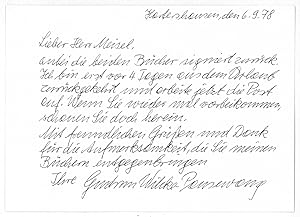 Hadershausen, den 6.9.78
Lieber Herr Meisel,
anbei die beiden Bücher signiert zurück.
Ich bin erst vor 4 Tagen aus dem Urlaub
zurückgekehrt, und arbeite jetzt die Post
auf. Wenn Sie wieder mal vorbeikommen,
schauen Sie doch herein.
Mit freundlichen Grüßen und Dank
für die Aufmerksamkeit, die Sie meinen
Büchern entgegenbringen
Ihre Gudrun Pausewang